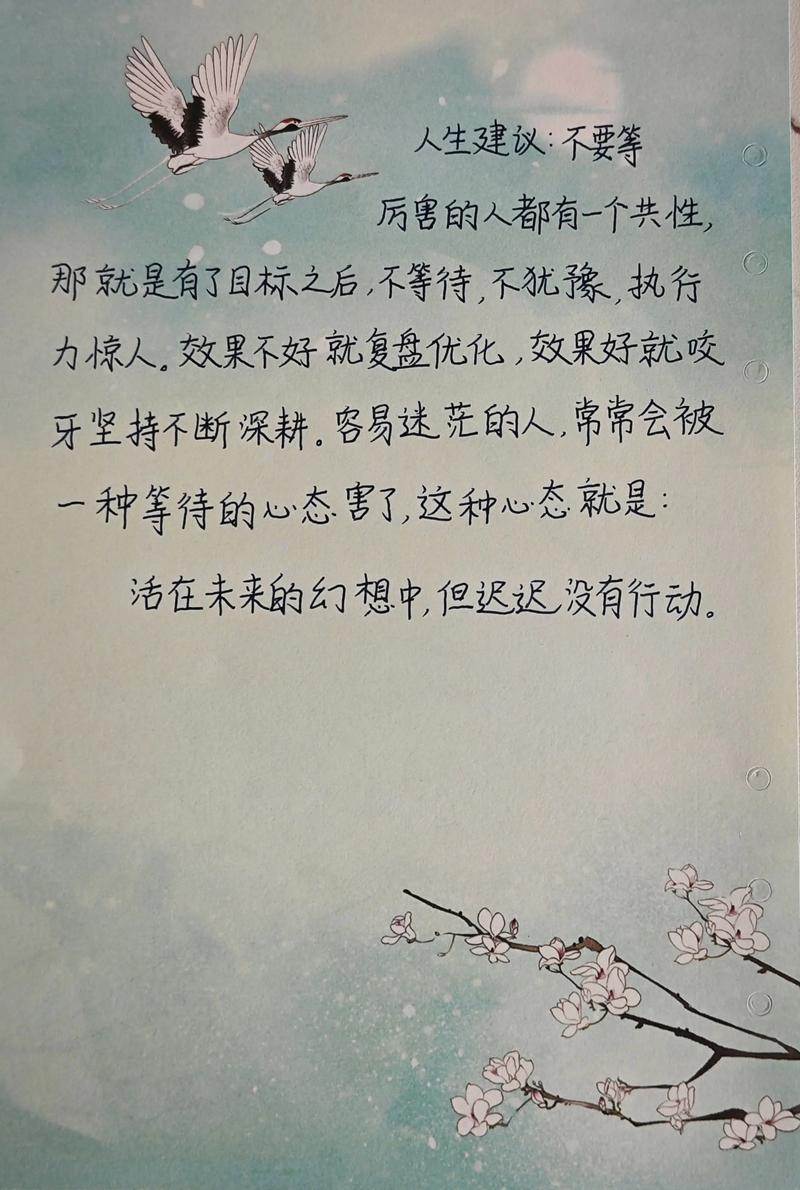 人生建议:不要等
厉害的人都有一个共性,
那就是有了目标之后,不等待,不犹豫,执行
力惊人。效果不好就复盘优化,效果好就咬
牙坚持不断深耕。容易迷茫的人,常常会被
一种等待的心态害了,这种心态就是:
活在未来的幻想中,但迟迟没有行动。